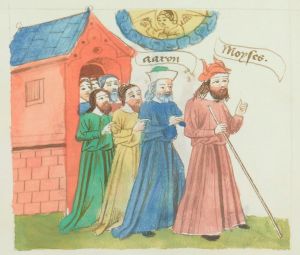 aaron
Moyses.